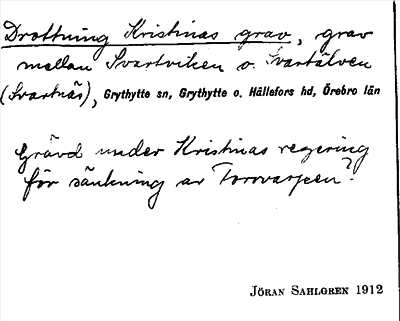 Drottning Kristinas grav, grav
mellan Svartviken o. Svartälven
(Svartnäs), Grythytte sn, Grythytte o. Hällefors hd, Örebro län
Grävd under Kristinas regering
för sänkning av Torrvarpen?
JÖRAN SAHLGREN 1912